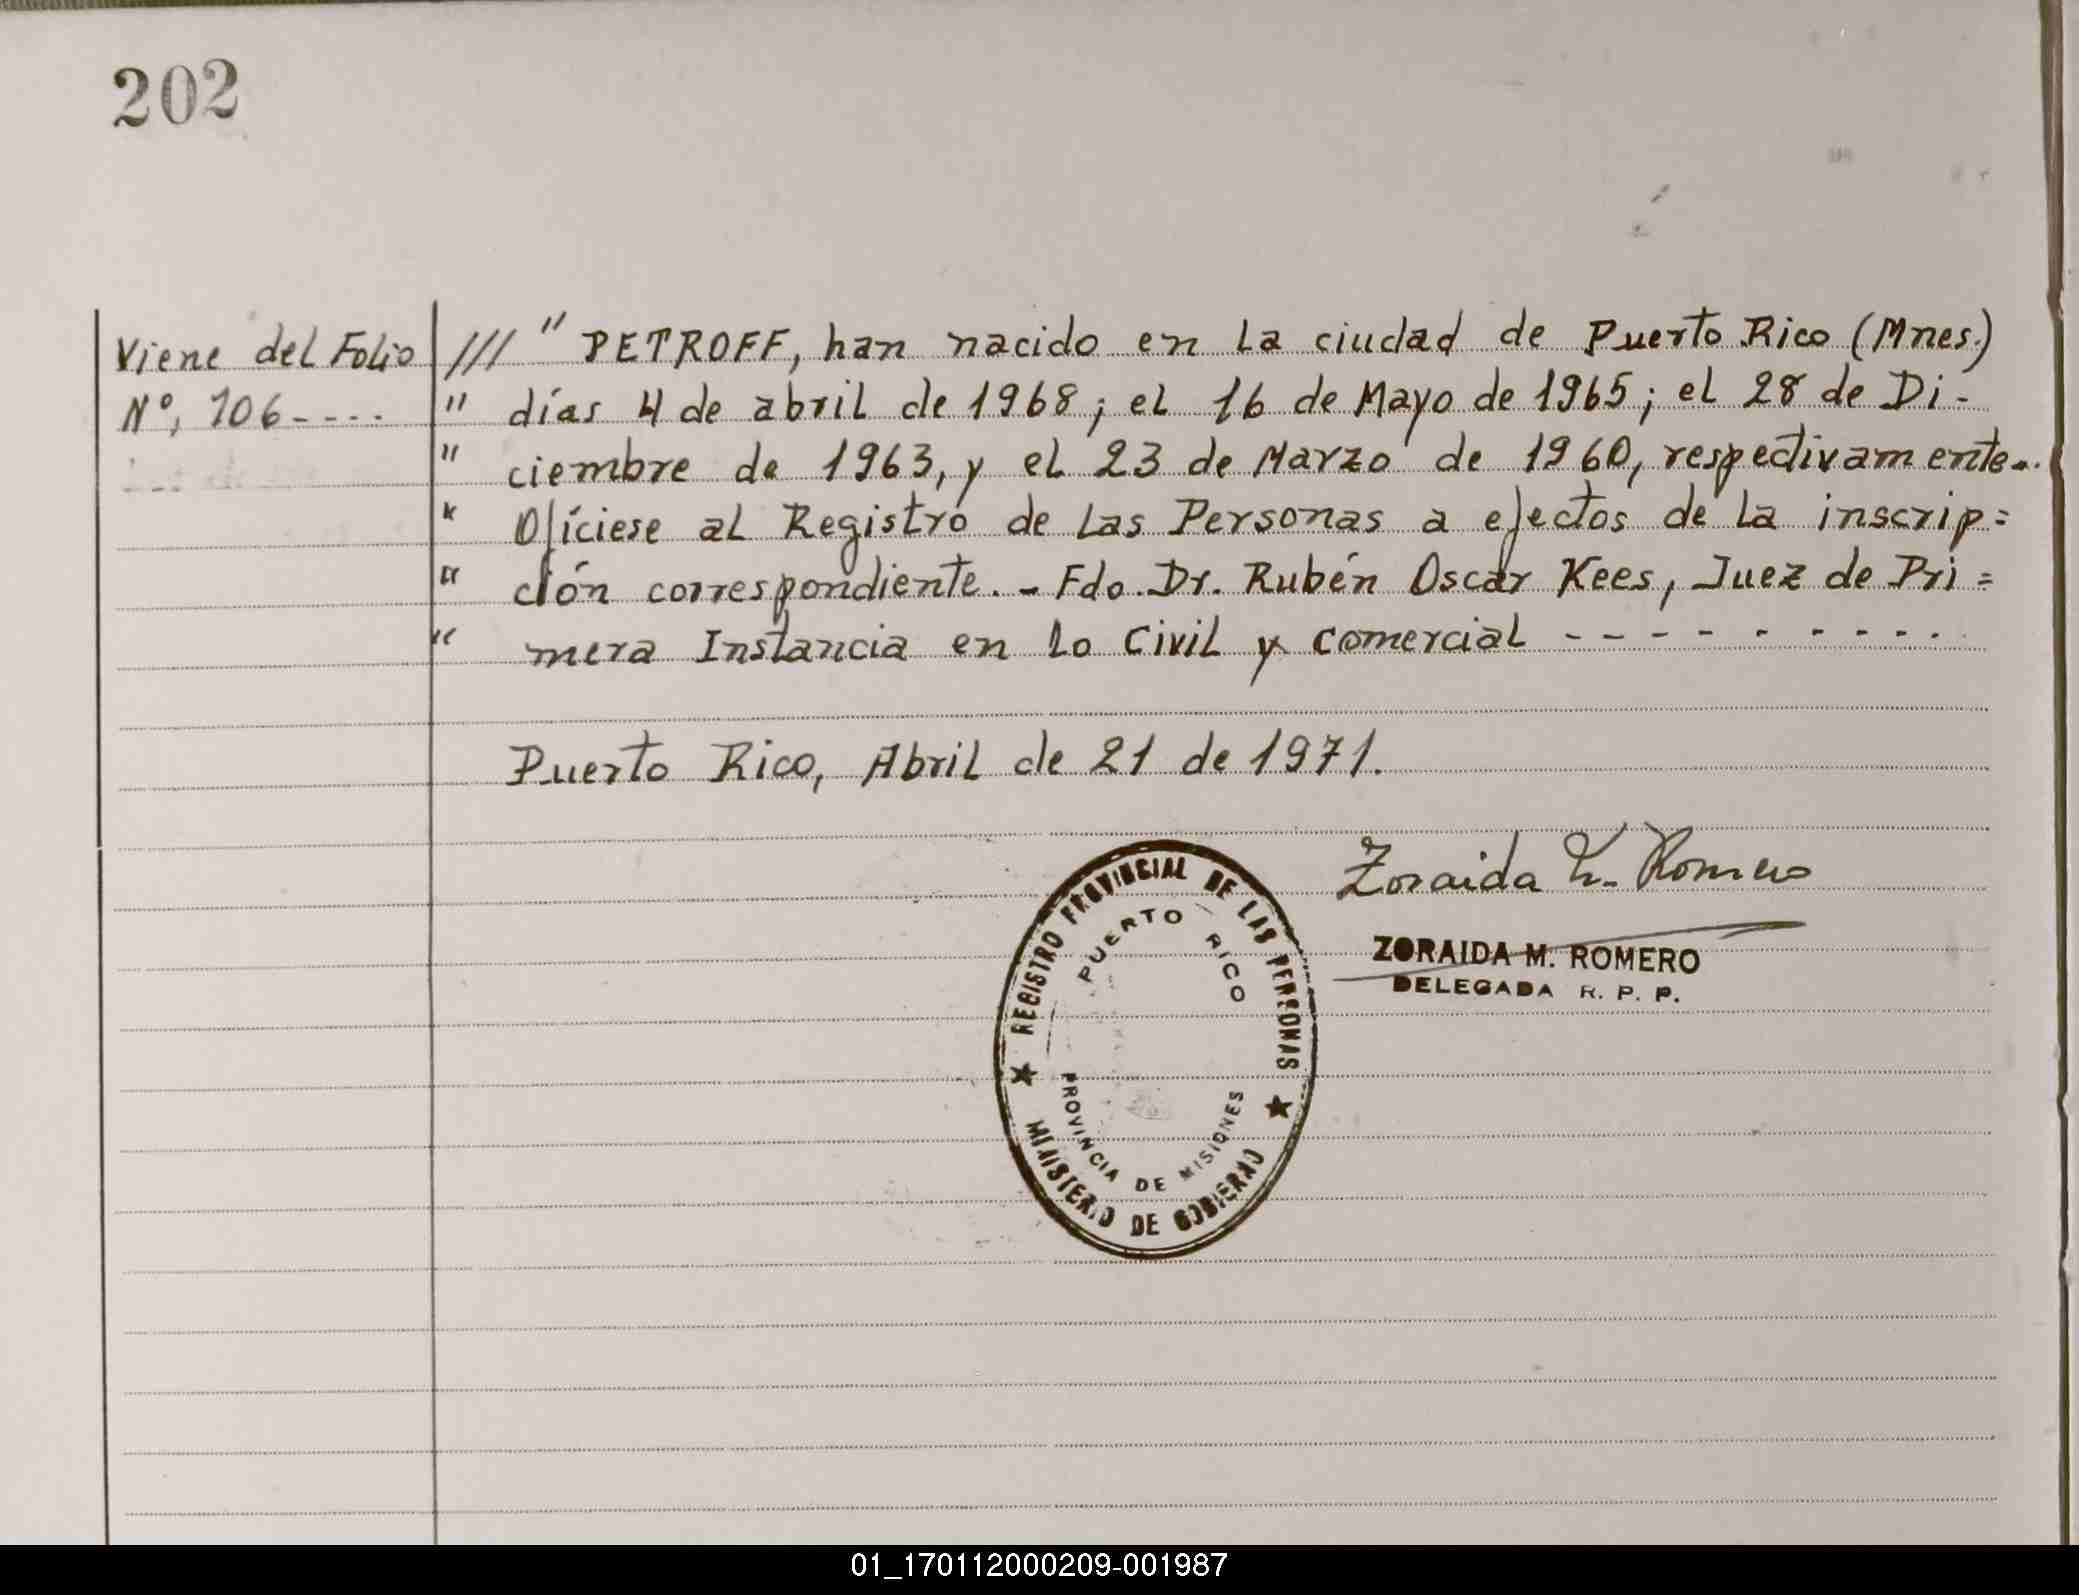 202
Viene del Folio
Nº, 106-----
/// " PETROFF, han nacido en la ciudad de Puerto Rico (Mnes.)
" días 4 de abril de 1968; el 16 de Mayo de 1965; el 28 de Di-
" ciembre de 1963, y el 23 de Marzo de 1960, respectivamente..
" Ofíciese al Registro de las Personas a efectos de la inscrip=
" ción correspondiente.- Fdo. Dr. Rubén Oscar Kees, Juez de Pri=
" mera Instancia en lo Civil y Comercial ----------
Puerto Rico, Abril de 21 de 1971.
Zoraida M. Romero
ZORAIDA M. ROMERO
DELEGADA R. P. P.
REGISTRO PROVINCIAL DE LAS PERSONAS
PUERTO RICO
PROVINCIA DE MISIONES
MINISTERIO DE GOBIERNO
01_170112000209-001987